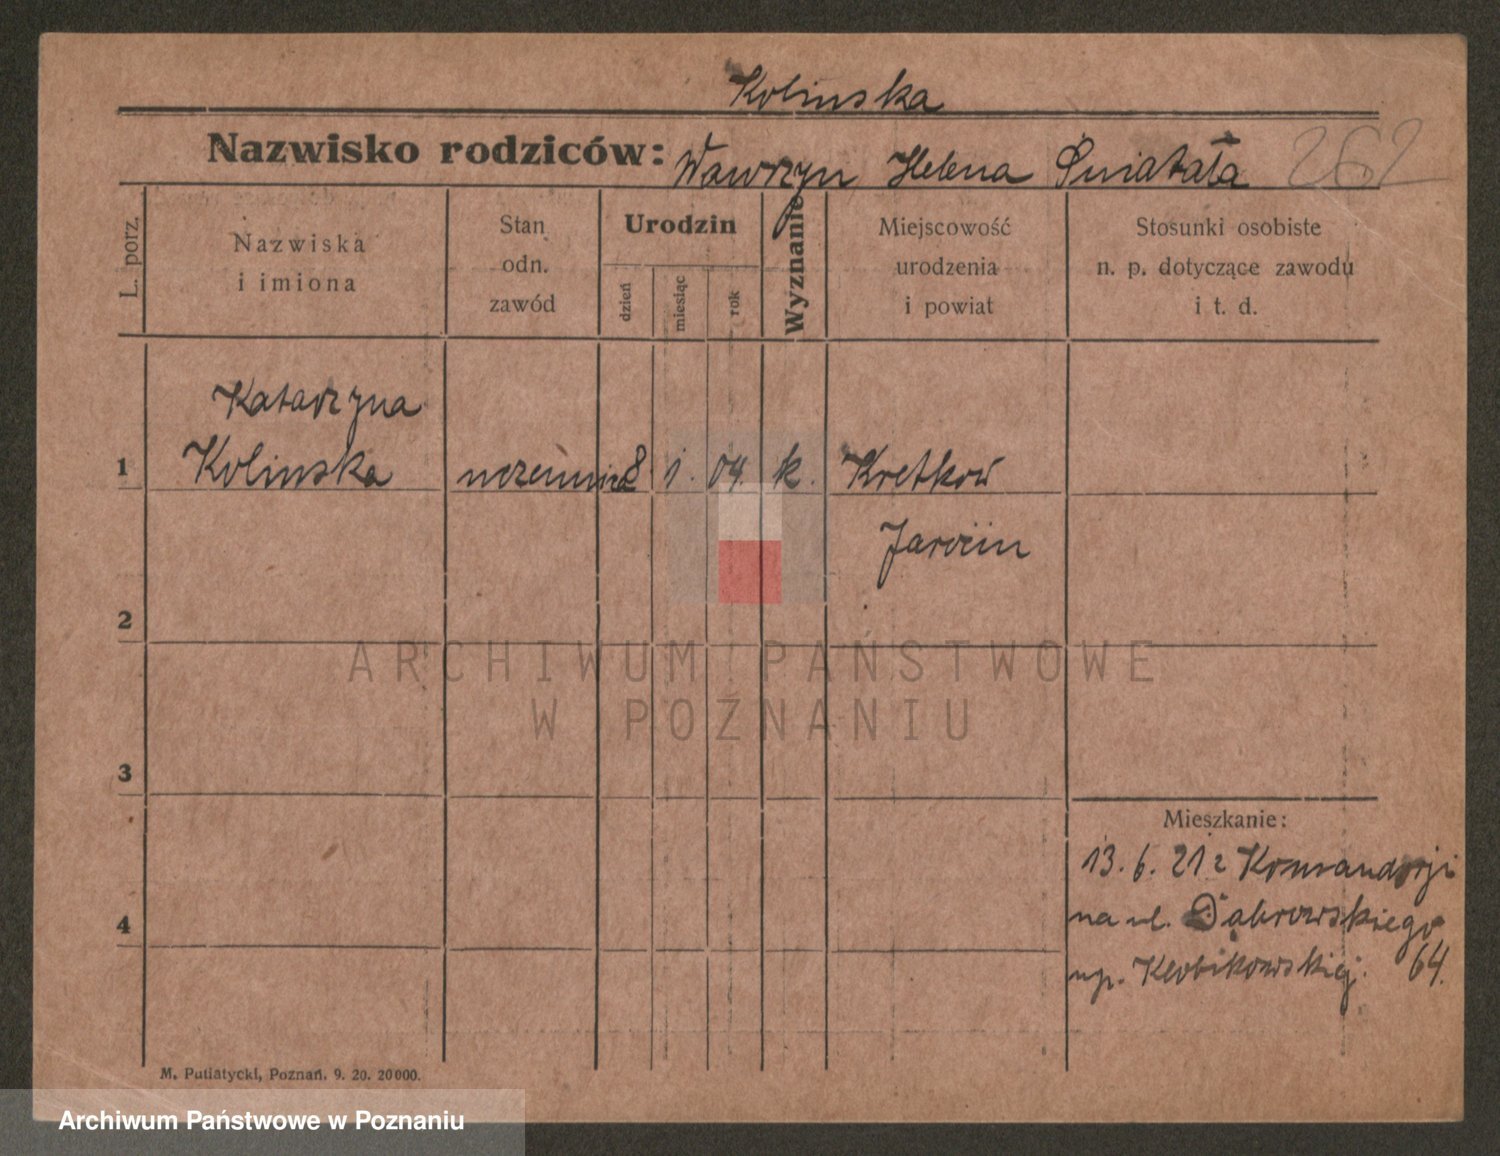 Kolinska
Nazwisko rodziców: Wawrzyn Helena Światała 262
L. porz.
Nazwiska
i imiona
Stan
odn.
zawód
Urodzin
dzień
miesiąc
rok
Wyznanie
Miejscowość
urodzenia
i powiat
Stosunki osobiste
n. p. dotyczące zawodu
i t. d.
Katarzyna
1 Kolinska 8 1. 04. k. Kretkow
Jarocin
2
ARCHIWUM PAŃSTWOWE
W POZNANIU
3
Mieszkanie:
13. 6. 21 z Komandorji
4 na ul. Dąbrowskiego
64.
M. Putiatycki, Poznań. 9. 20. 20000.
Archiwum Państwowe w Poznaniu